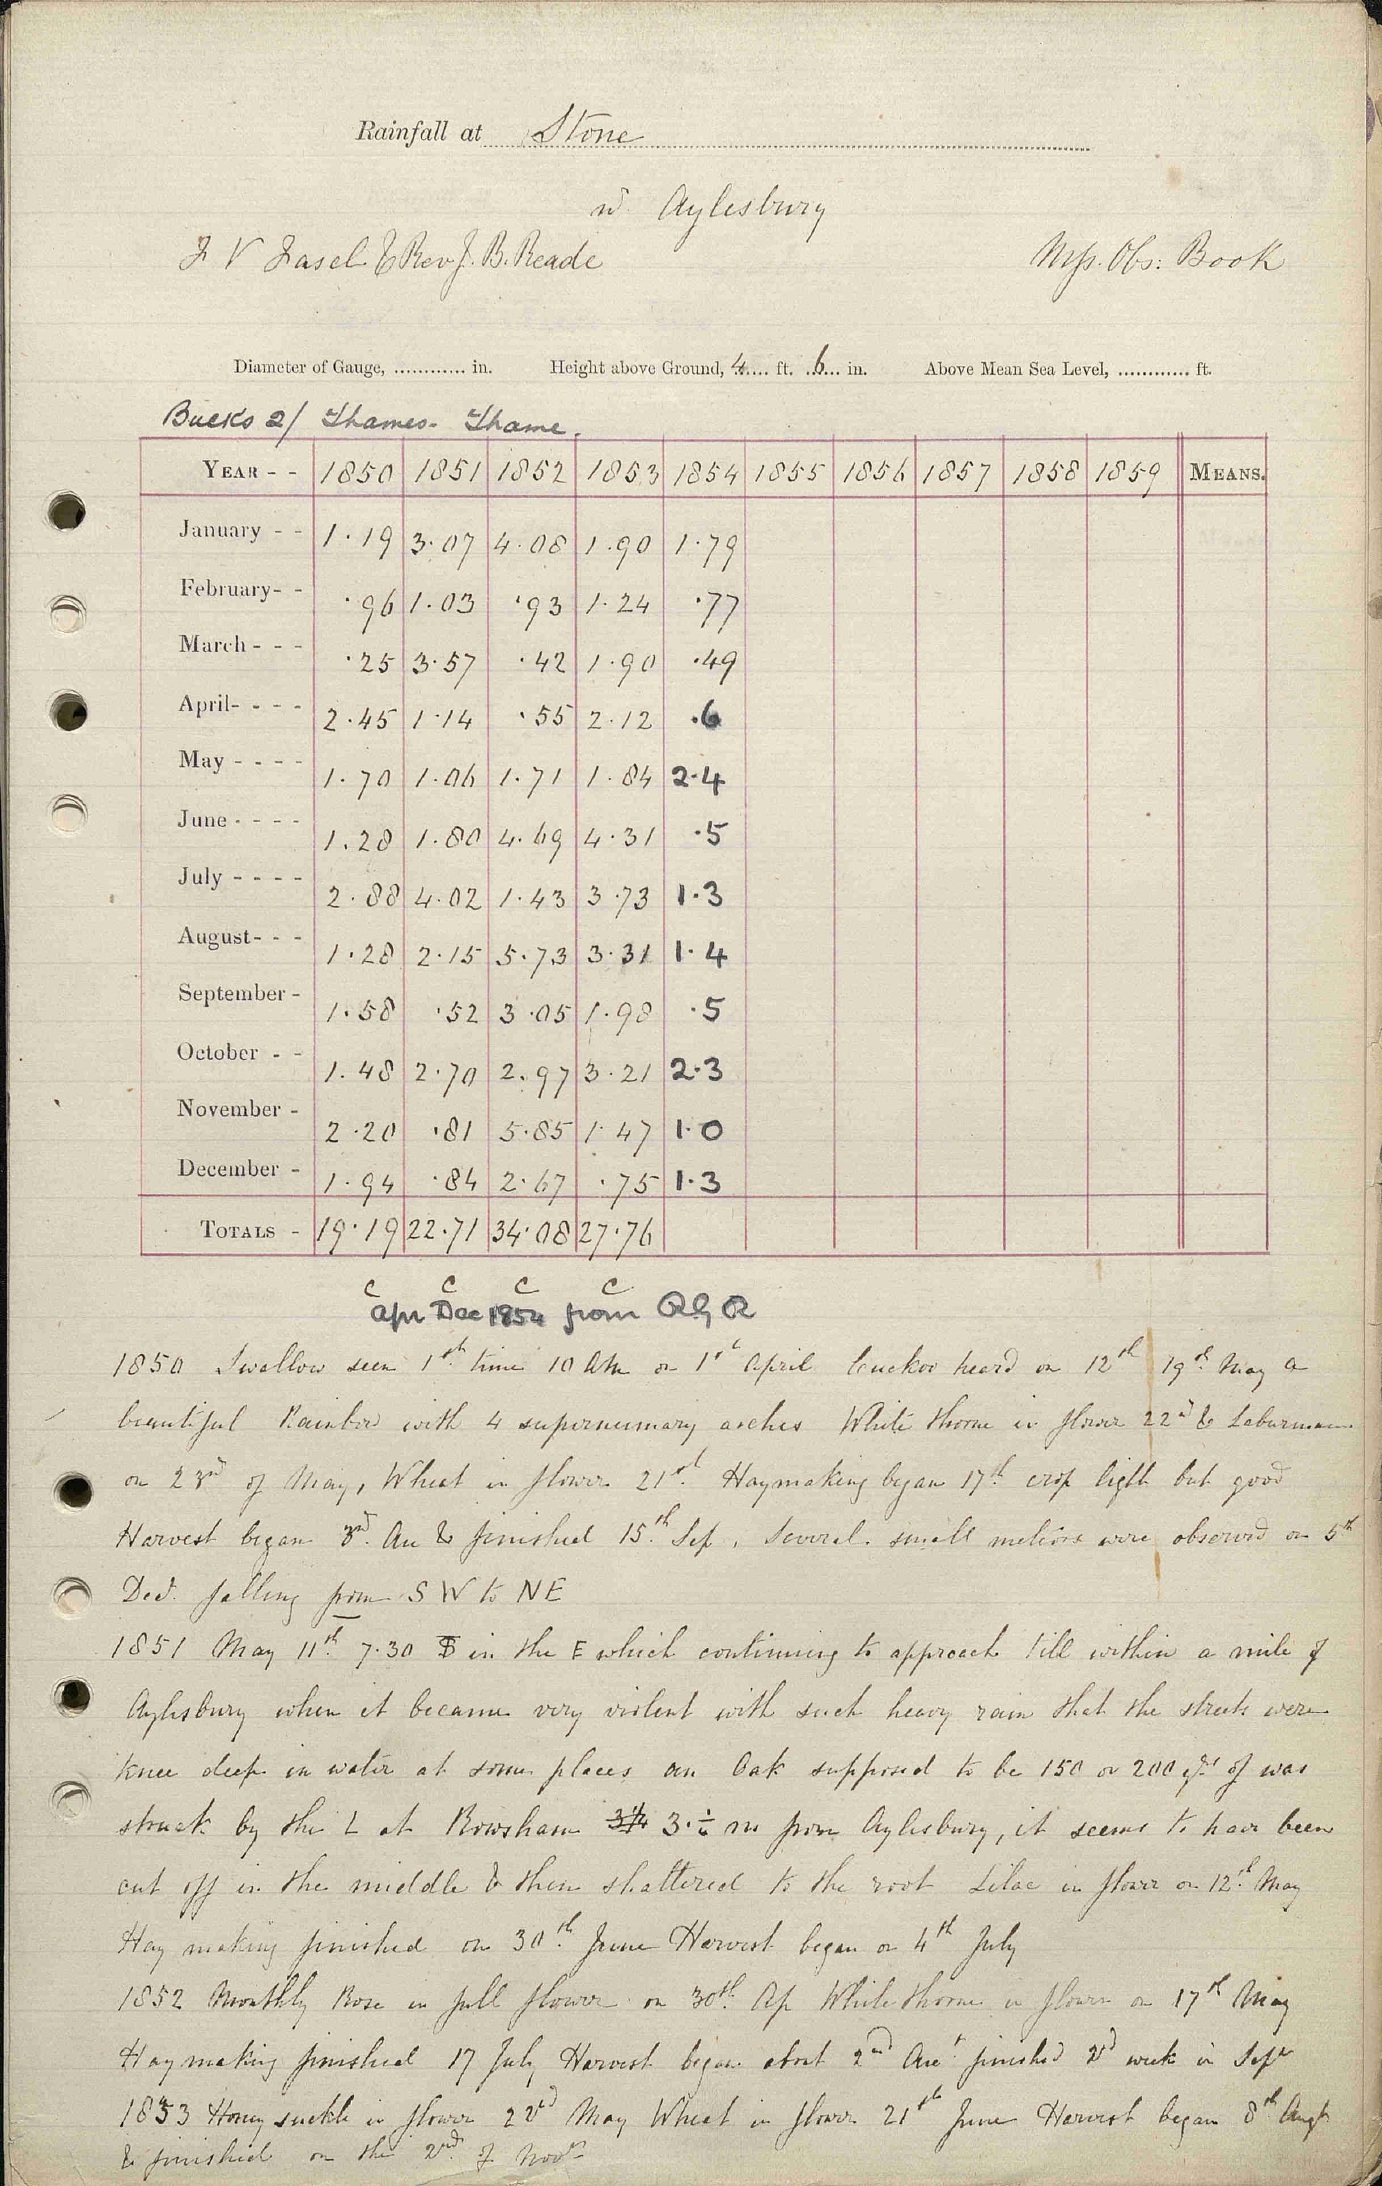 Rainfall at Stone
nr Aylesbury
J V Fasel & Rev J. B. Reade Mss. Obs: Book
Diameter of Gauge, ............ in. Height above Ground, 4 ft. 6 in. Above Mean Sea Level, ............ ft.
Bucks 2/ Thames - Thame.
YEAR - - 1850 1851 1852 1853 1854 1855 1856 1857 1858 1859 MEANS.
January - - 1.19 3.07 4.08 1.90 1.79
February - - .96 1.03 .93 1.24 .77
March - - - .25 3.57 .42 1.90 .49
April - - - - 2.45 1.14 .55 2.12 .6
May - - - - 1.70 1.06 1.71 1.84 2.4
June - - - - 1.28 1.80 4.69 4.31 .5
July - - - - 2.88 4.02 1.43 3.73 1.3
August - - - 1.28 2.15 5.73 3.31 1.4
September - 1.58 .52 3.05 1.98 .5
October - - 1.48 2.70 2.97 3.21 2.3
November - 2.20 .81 5.85 1.47 1.0
December - 1.94 .84 2.67 .75 1.3
TOTALS - 19.19 22.71 34.08 27.76
c c c c
Apr Dec 1854 from
1850 Swallow seen 1st time 10 AM on 1st April Cuckoo heard on 12th 19th May a
beautiful Rainbow with 4 supernumary arches White thorne in flower 22nd & Laburnum
on 23rd of May, Wheat in flower 21st Haymaking began 17th crop light but good
Harvest began 3rd Au & finished 15th Sep, Several small meteors were observed on 5th
Decr falling from SW to NE
1851 May 11th 7.30 in the E which continuing to approach till within a mile of
Aylesbury when it became very violent with such heavy rain that the streets were
knee deep in water at some places an Oak supposed to be 150 or 200 yrs of was
struck by the L at Rowsham 3 1/4 3.1/2 m from Aylesbury, it seems to have been
cut off in the middle & then shattered to the root Lilac in flower on 12th May
Hay making finished on 30th June Harvest began on 4th July
1852 Monthly Rose in full flower on 30th Ap White thorne in flower on 17th May
Hay making finished 17 July Harvest began about 2nd Aut finished 2d week in Sepr
1853 Honey suckle in flower 22nd May Wheat in flower 21st June Harvest began 8th Augt
& finished on the 2nd of Novr